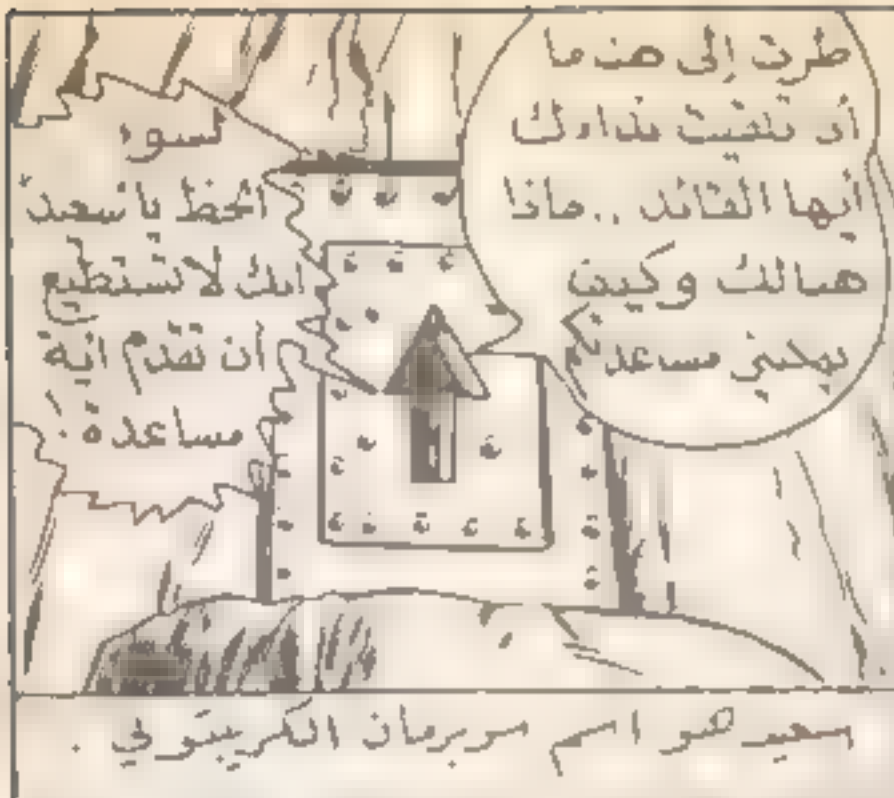 طرت إلى هنا ما
أن تلقيت نداءك
أيها القائد .. ماذا
هنالك وكيف
يمكنني مساعدتك
لسوء
الحظ يا سعيد
انك لا تستطيع
أن تقدم اية
مساعدة !
سعيد هو اسم سوبرمان الكريبتوني .